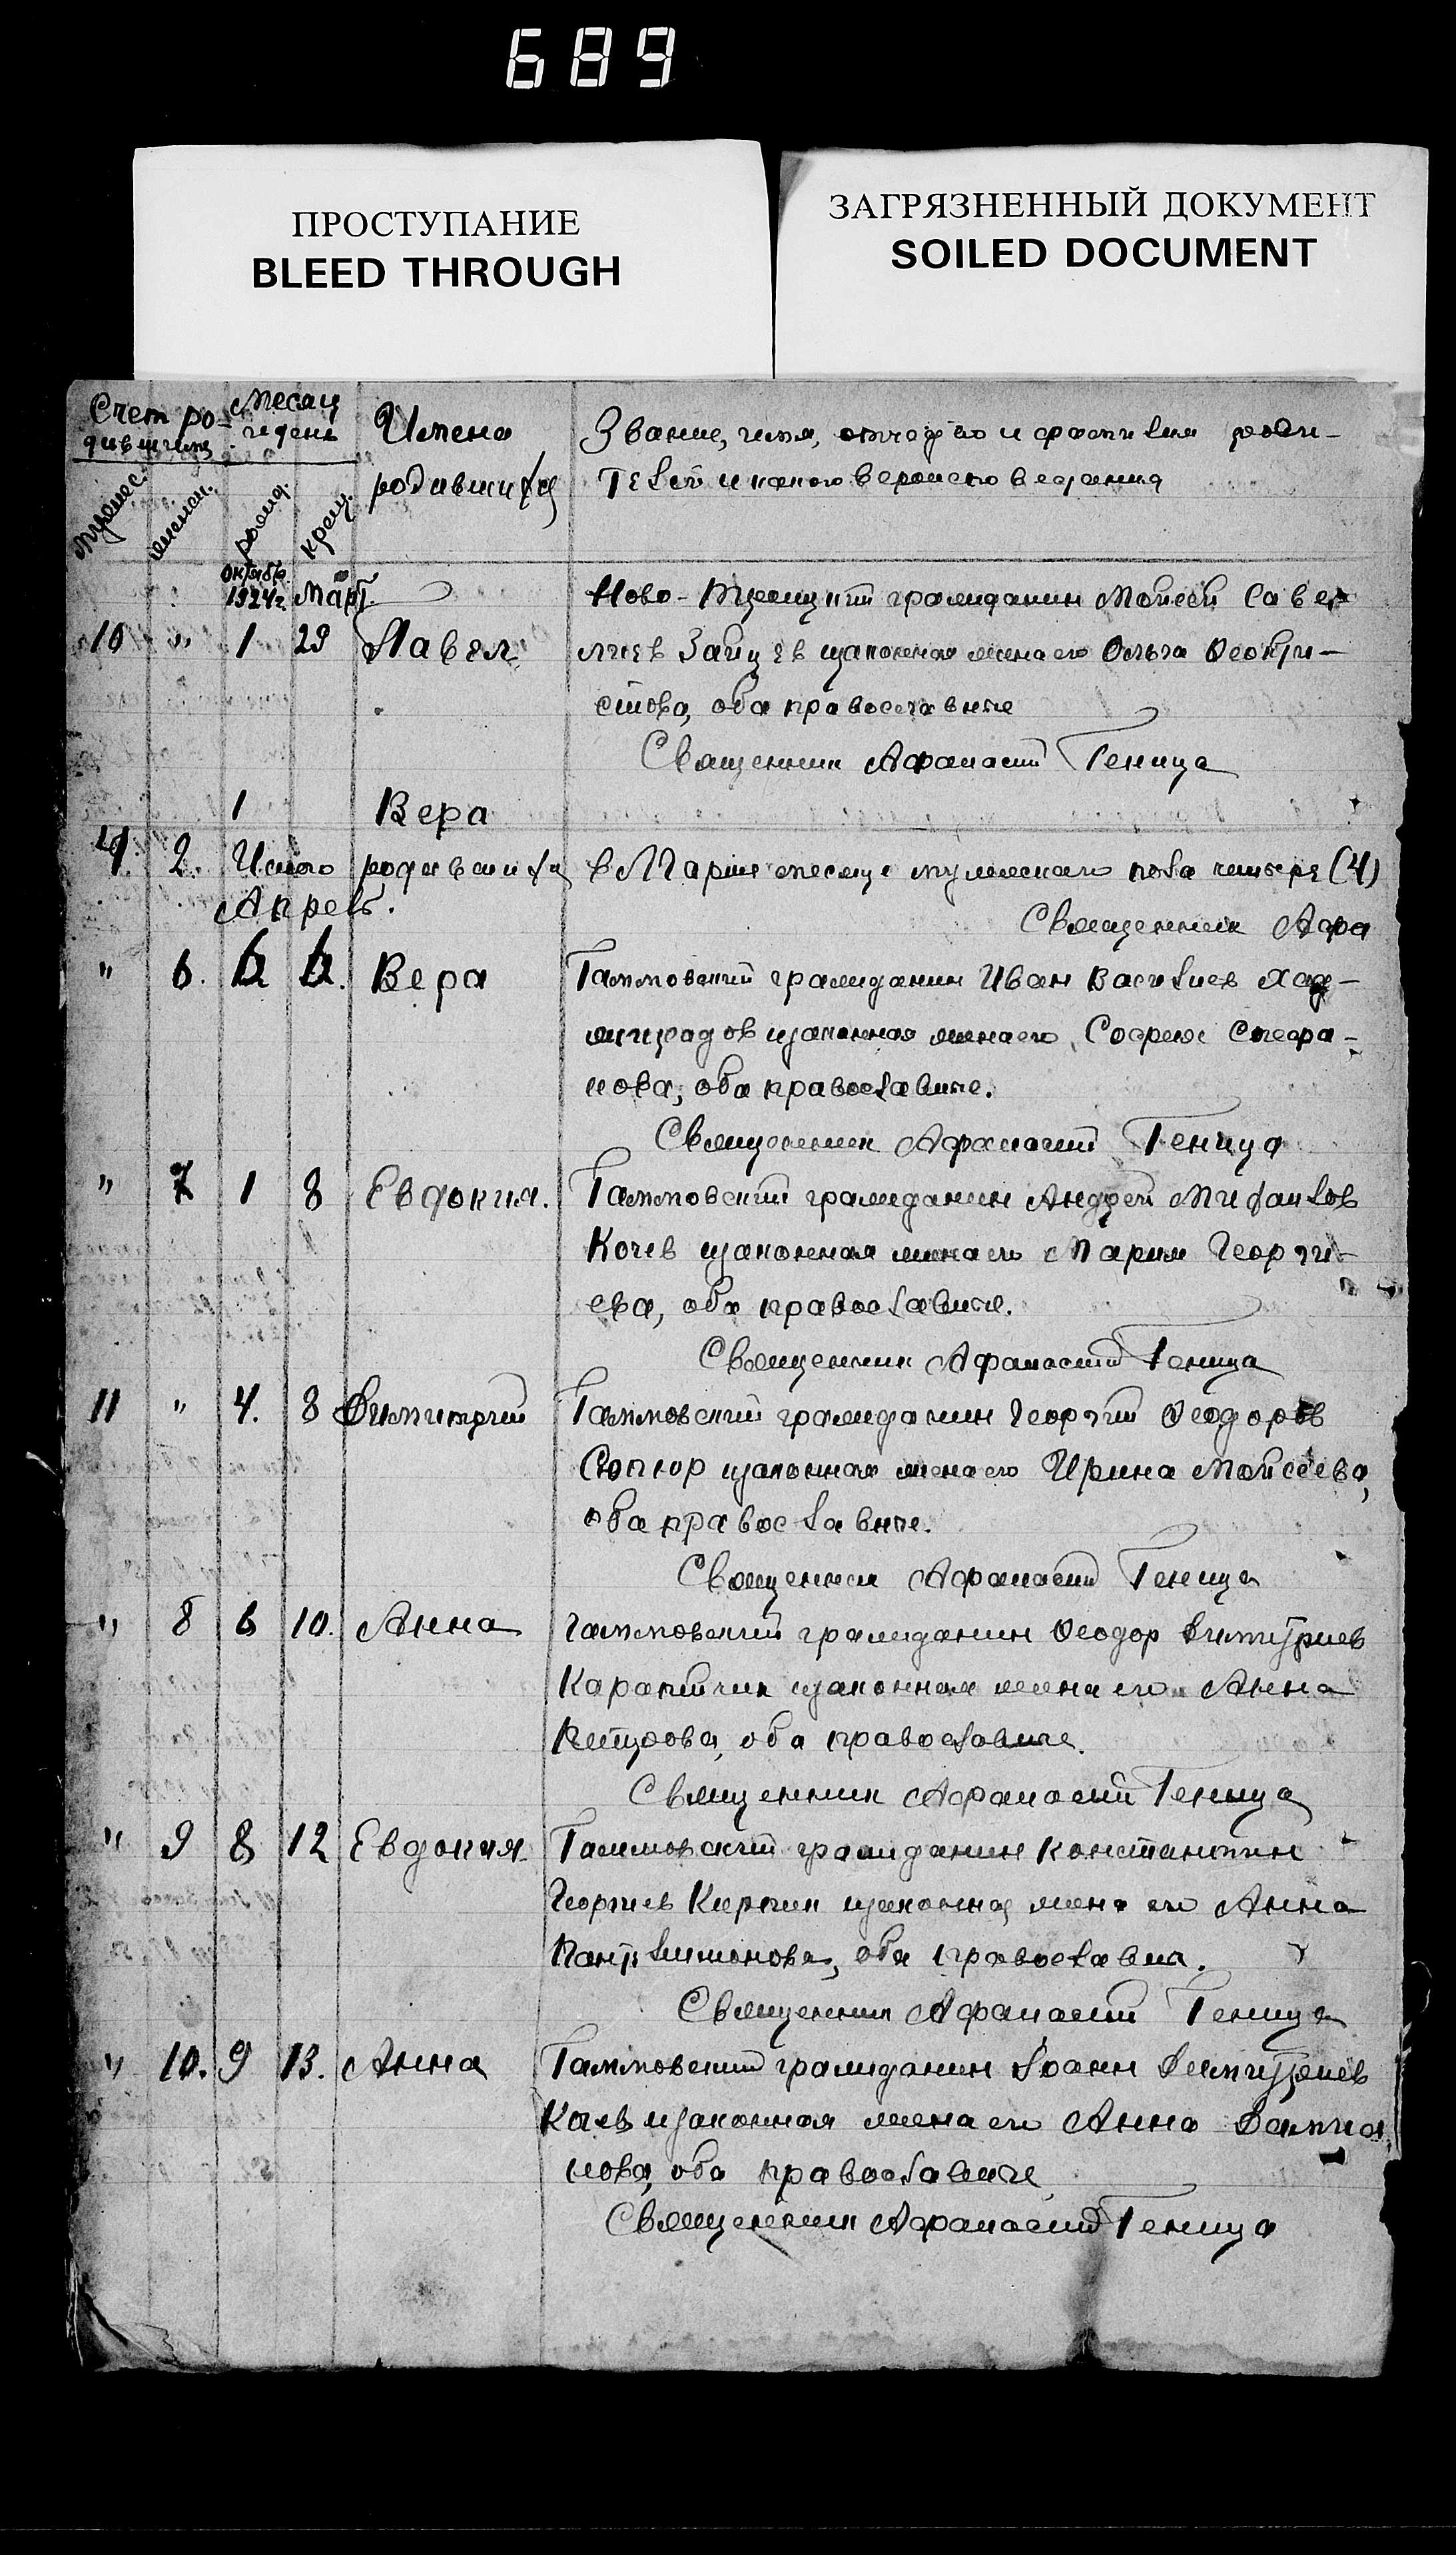 689
ПРОСТУПАНИЕ
BLEED THROUGH
ЗАГРЯЗНЕННЫЙ ДОКУМЕНТ
SOILED DOCUMENT
Счет ро-
дившихся
Месяц
и день
Имена
родившихся
Звание, имя, отчество и фамилия роди-
телей и какого вероисповедания
мужес.
женск.
рожд.
крещ.
октябр.
1924 г. Март.
Ново-Троицкий гражданин Мойсей Савел
10 " 1 29 Павел
лиев Зайцев изаконная жена его Ольга Феокти-
стова, оба православные
Священник Афанасий Геница
1 Вера
4. 2. Итого родившихся в Марте месяце мужескаго пола четыре (4)
Апрель.
Священник Афа
" 6. 6. Вера Гаммовский гражданин Иван Василиев
изаконная жена его, София Стефа-
нова, оба православные.
Священник Афанасий Геница
" 7 1 8 Евдокия. Гаммовский гражданин Андрей Михаилов
Кочев изаконная жена его Мария Георги-
ева, оба православные.
Священник Афанасий Геница
11 " 4. 8 Димитрий Гаммовский гражданин Георгий Феодоров
изаконная жена его Ирина Мойсеева,
оба православные.
Священник Афанасий Геница
" 8 6 10. Анна Гаммовский гражданин Феодор Димитриев
изаконная жена его Анна
Петрова, оба православные.
Священник Афанасий Геница
" 9 8 12 Евдокия Гаммовский гражданин Константин
Георгиев изаконная жена его Анна
оба православны.
Священник Афанасий Геница
" 10. 9 13. Анна Гаммовский гражданин Іоанн Димитриев
Кочев изаконная жена его Анна Дамиа
нова, оба православные
Священник Афанасий Геница